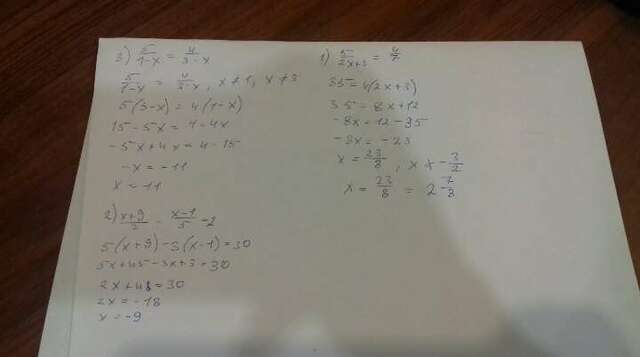 3) 5/1-x = 4/3-x
5/1-x = 4/3-x , x ≠ 1, x ≠ 3
5(3-x) = 4(1-x)
15-5x = 4-4x
-5x+4x = 4-15
-x = -11
x = 11
2) x+9/3 - x-1/5 = 2
5(x+9)-3(x-1)=30
5x+45-3x+3=30
2x+48=30
2x = -18
x = -9
1) 5/2x+3 = 4/7
35 = 4(2x+3)
35 = 8x+12
-8x = 12-35
-8x = -23
x = 23/8 , x ≠ -3/2
x = 23/8 = 2 7/8